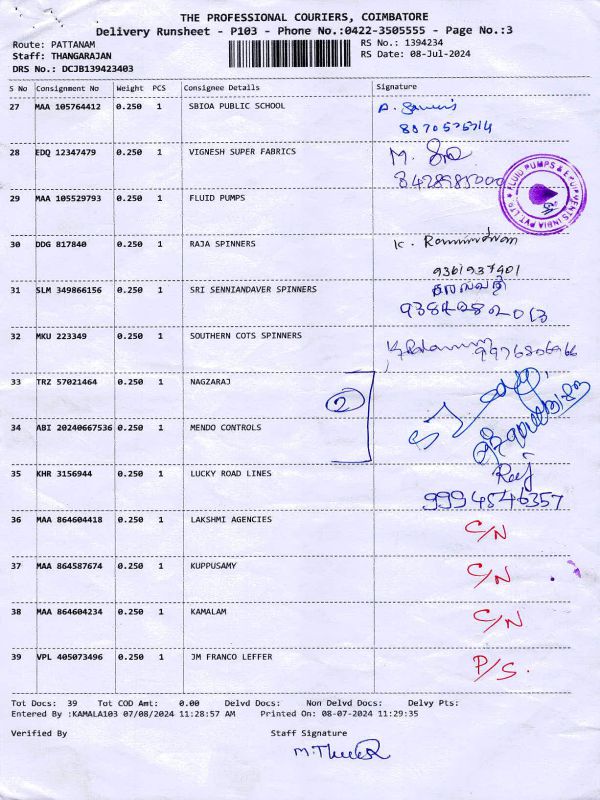 THE PROFESSIONAL COURIERS, COIMBATORE
Delivery Runsheet - P103 - Phone No.:0422-3505555 - Page No.:3
Route: PATTANAM RS No.: 1394234
Staff: THANGARAJAN RS Date: 08-Jul-2024
DRS No.: DCJB139423403
S No Consignment No Weight PCS Consignee Details Signature
27 MAA 105764412 0.250 1 SBIOA PUBLIC SCHOOL
28 EDQ 12347479 0.250 1 VIGNESH SUPER FABRICS M.
29 MAA 105529793 0.250 1 FLUID PUMPS
FLUID PUMPS & EQUIPMENTS INDIA PVT LTD
30 DDG 817840 0.250 1 RAJA SPINNERS K.
9361937401
31 SLM 349866156 0.250 1 SRI SENNIANDAVER SPINNERS
32 MKU 223349 0.250 1 SOUTHERN COTS SPINNERS
9976806966
33 TRZ 57021464 0.250 1 NAGZARAJ
2
34 ABI 20240667536 0.250 1 MENDO CONTROLS
35 KHR 3156944 0.250 1 LUCKY ROAD LINES
9994546357
36 MAA 864604418 0.250 1 LAKSHMI AGENCIES C/N
37 MAA 864587674 0.250 1 KUPPUSAMY C/N
38 MAA 864604234 0.250 1 KAMALAM C/N
39 VPL 405073496 0.250 1 JM FRANCO LEFFER P/S.
Tot Docs: 39 Tot COD Amt: 0.00 Delvd Docs: Non Delvd Docs: Delvy Pts:
Entered By :KAMALA103 07/08/2024 11:28:57 AM Printed On: 08-07-2024 11:29:35
Verified By Staff Signature